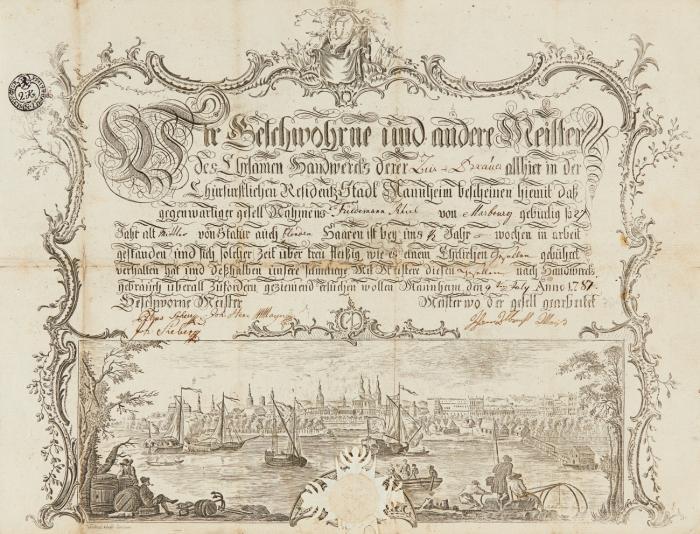 Wir Geschwohrne und andere Meister
des Ehrsamen Handwercks derer allhier in der
Churfürstlichen Residentz Stadt Mannheim bescheinen hiemit daß
gegenwärtiger gesell Nahmens Friedemann von Marbourg gebürtig so 27
Jahr alt Mittler von Statur auch Haaren ist bey uns Jahr wochen in arbeit
gestanden und sich solcher Zeit über treu fleißig, wie es einem Ehrlichen gesellen gebühret
verhalten hat und deßhalben unsere sämtliche Mit Meistere diesen gesellen nach Handwercks
gebrauch überall zu fördern geziemend ersuchen wollen Mannheim den 9ten July Anno 1787
Geschworne Meister Meister wo der gesell gearbeitet